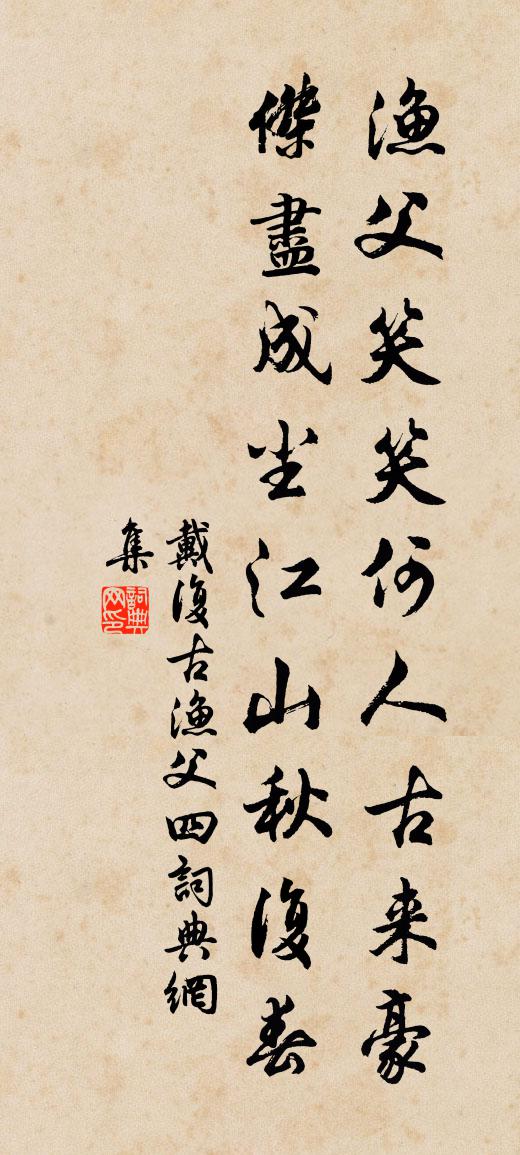 漁父笑笑何人古来豪
傑盡成尘江山秋復春
戴復古漁父四詞典網
集
詞典网印